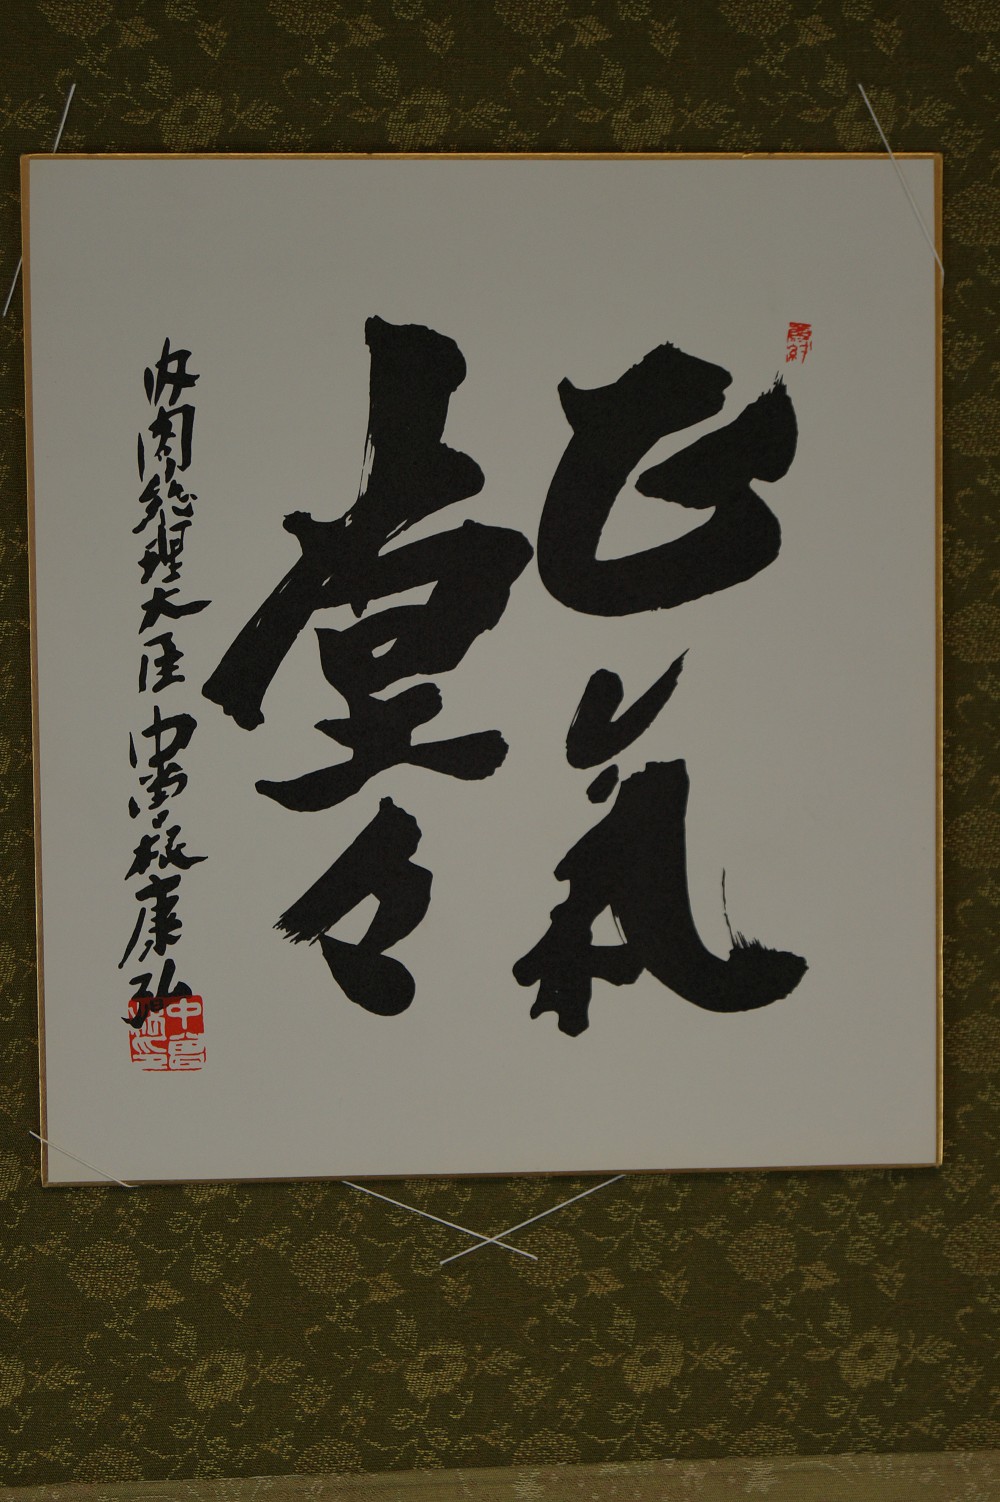 正氣
堂々
内閣総理大臣 中曽根康弘